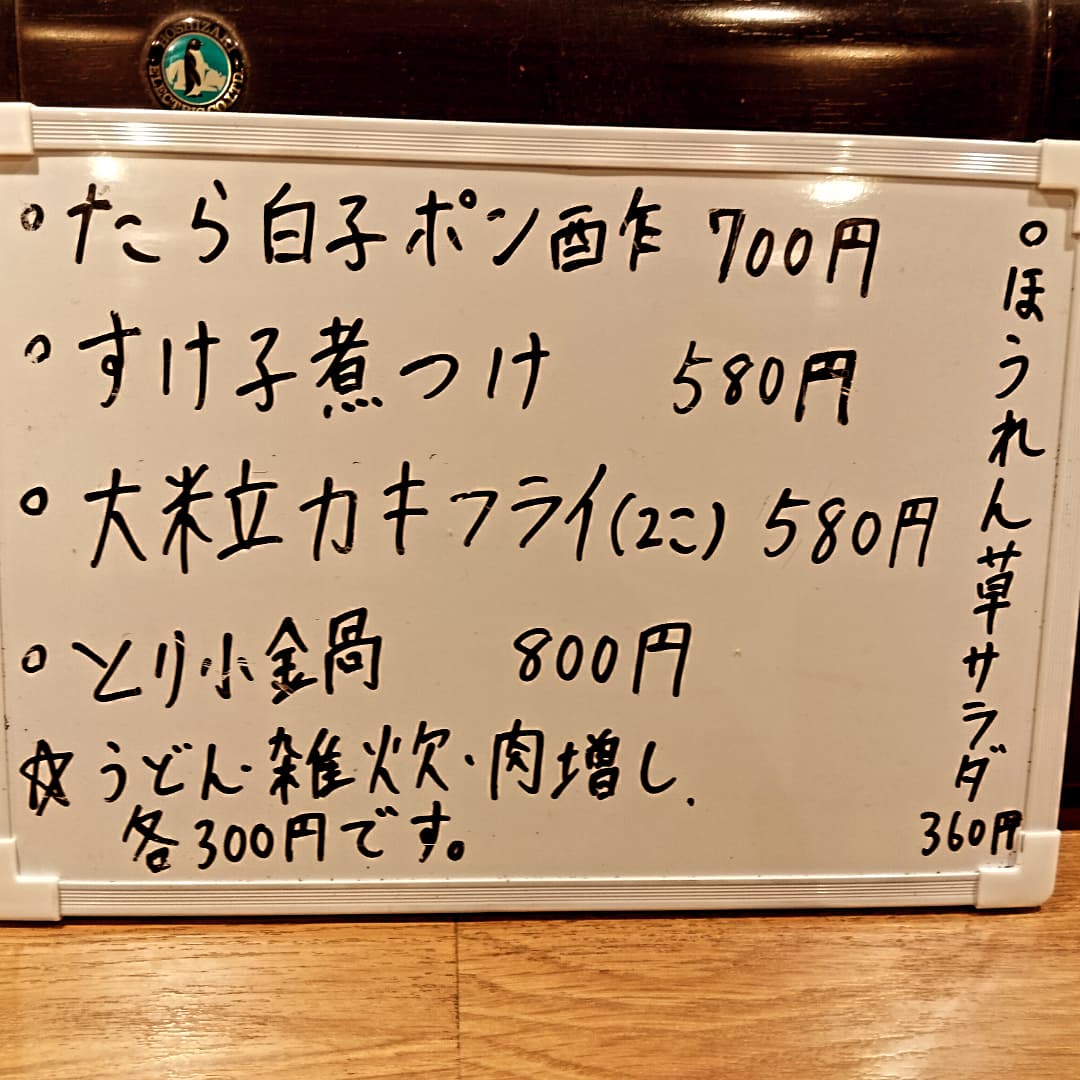 HOSHIZAKI ELECTRIC CO.,LTD.
○たら白子ポン酢 700円
○すけ子煮つけ 580円
○大粒カキフライ(2こ) 580円
○とり小鍋 800円
☆うどん・雑炊・肉増し、
各300円です。
○ほうれん草サラダ
360円